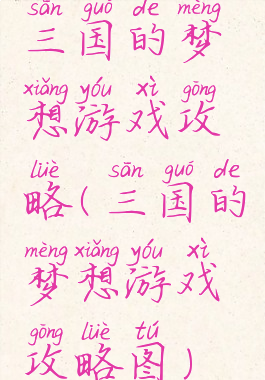 sān guó de mèng
三国的梦
xiǎng yóu xì gōng
想游戏攻
lüè sān guó de
略(三国的
mèng xiǎng yóu xì
梦想游戏
gōng lüè tú
攻略图)